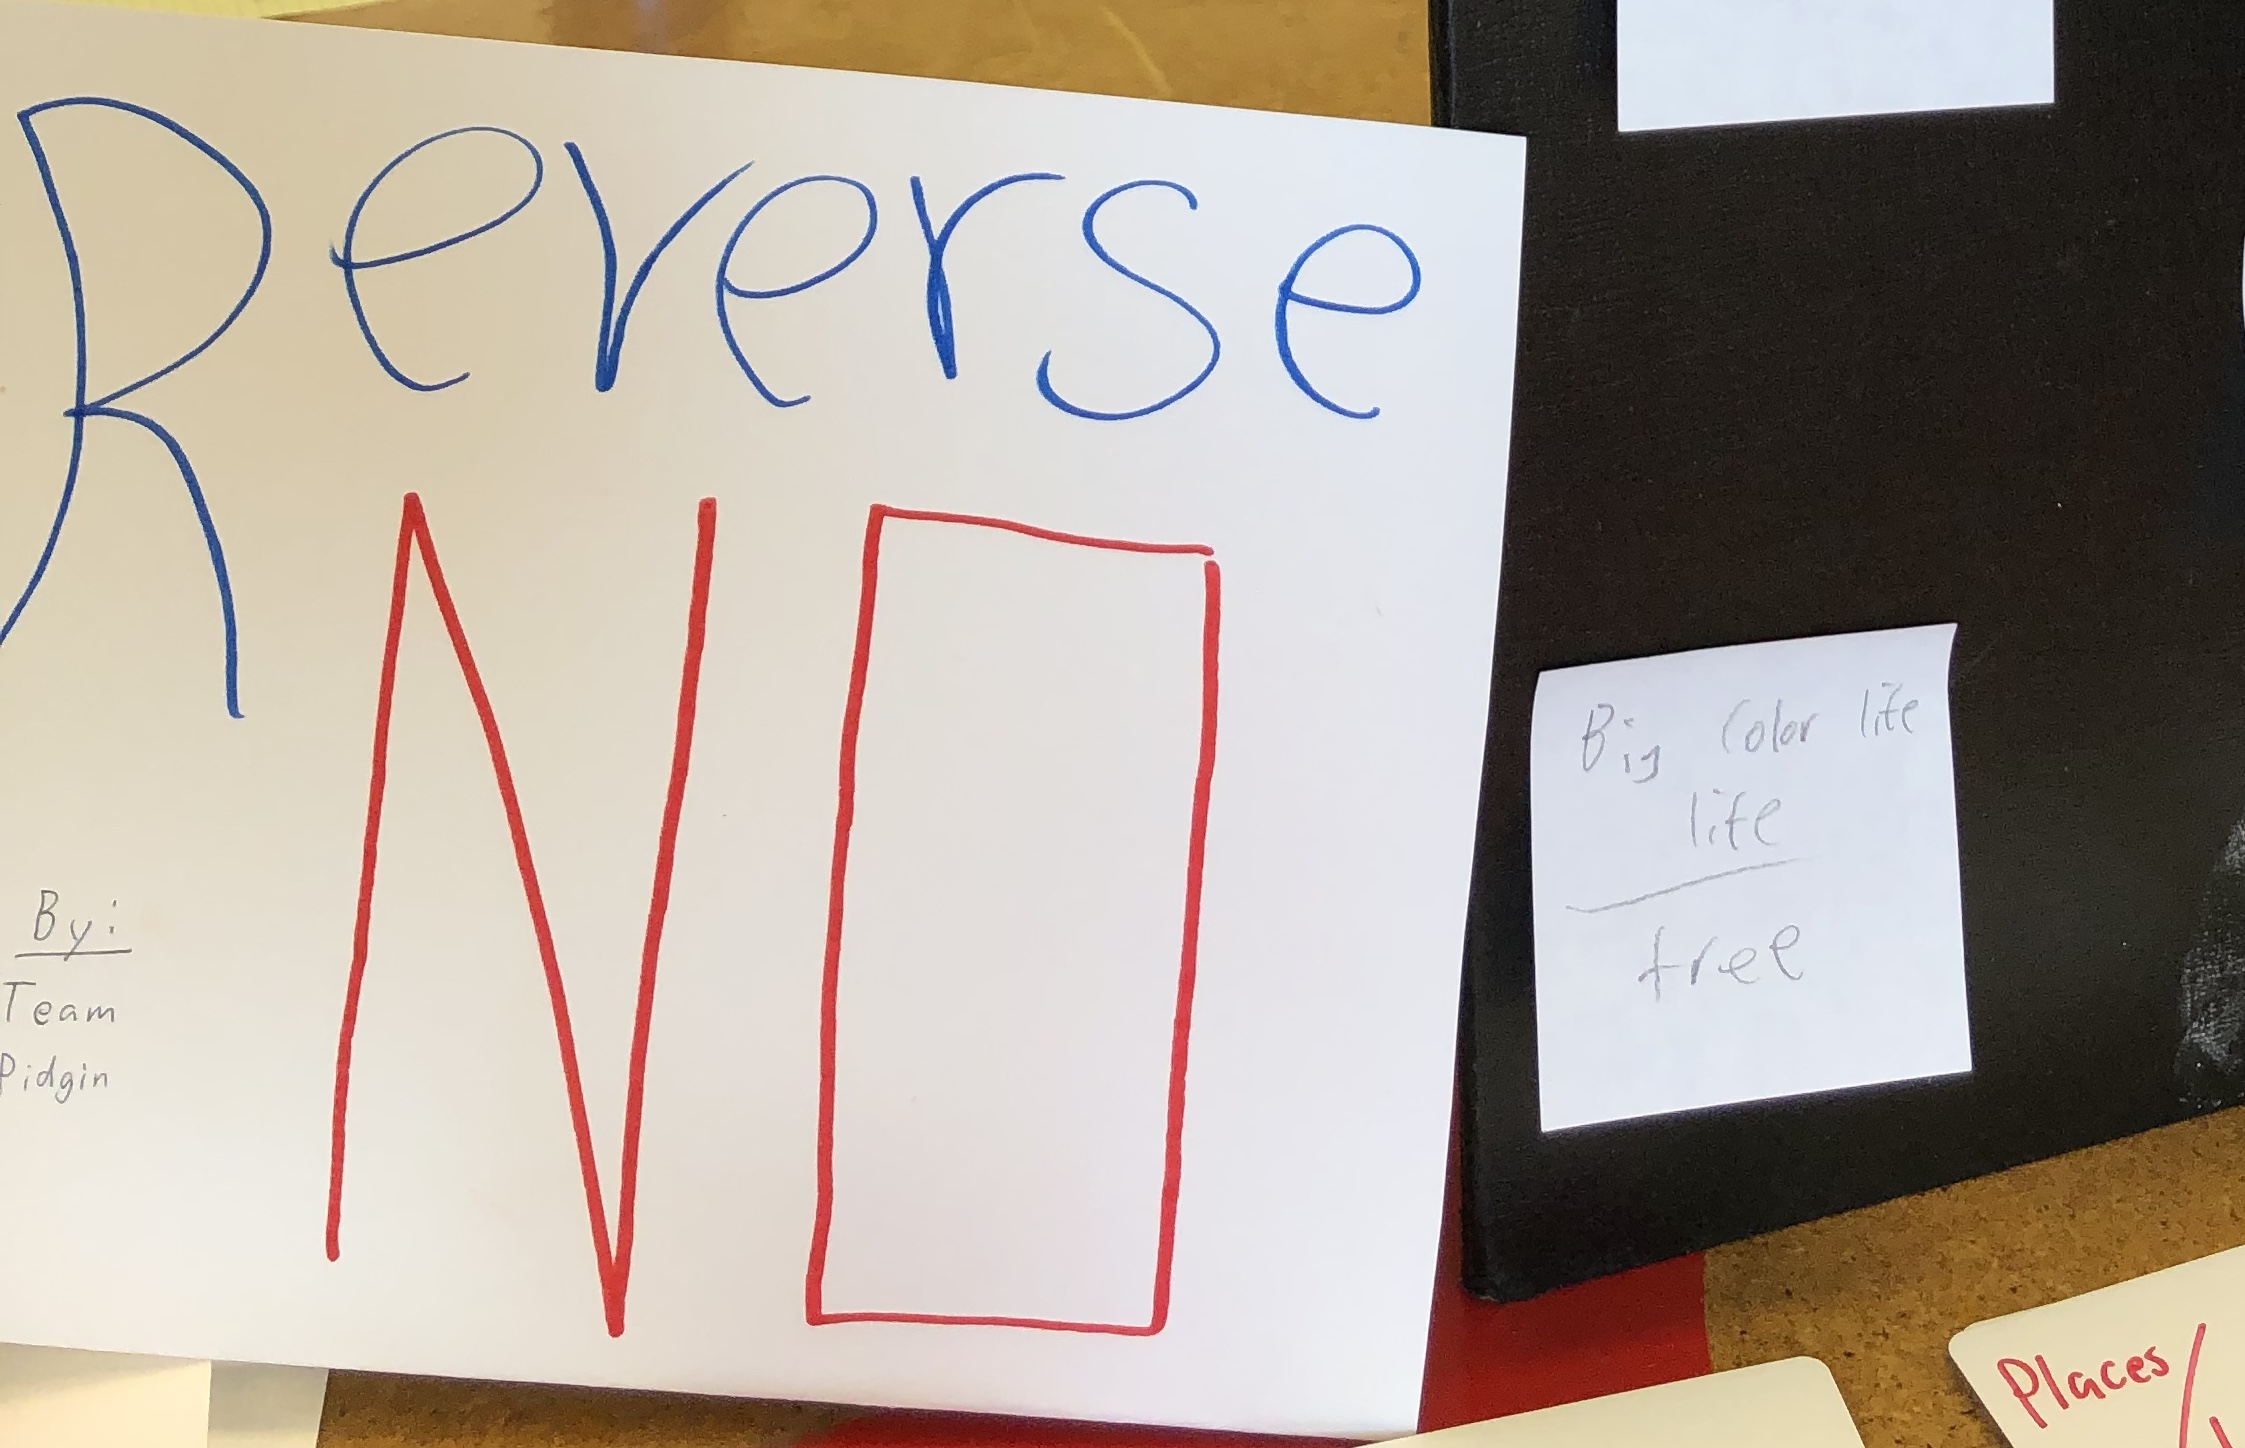 Reverse
NO
By:
Team
Pidgin
Big Color life
life
tree
Places/